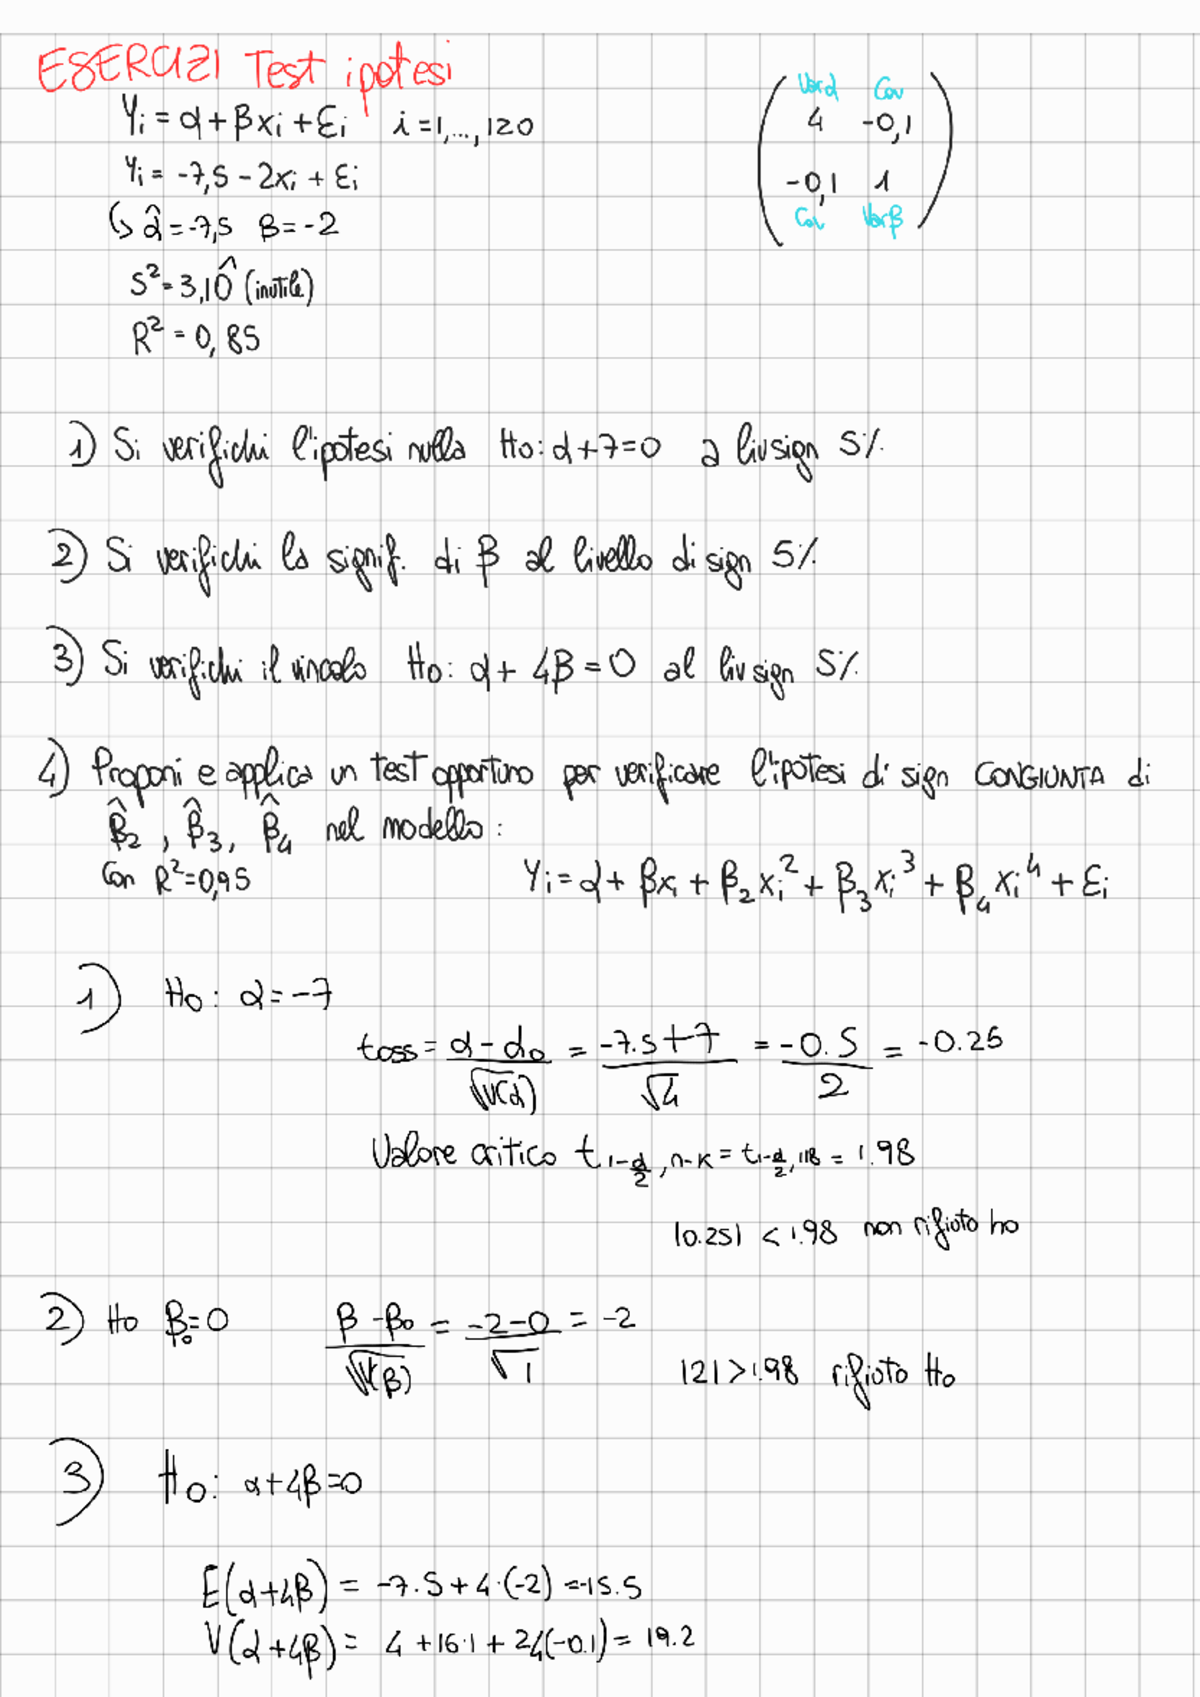 ESERCIZI Test ipotesi
Yi = α + βxi + εi   i = 1, ..., 120
Yi = -7,5 - 2xi + εi
↳ α̂ = -7,5   β̂ = -2
S² = 3,10 (inutile)
R² = 0,85
Varα   Cov
4   -0,1
-0,1   1
Cov   Varβ
1) Si verifichi l'ipotesi nulla Ho: α+7=0 a livsign 5%.
2) Si verifichi la signif. di β al livello di sign 5%.
3) Si verifichi il vincolo Ho: α + 4β = 0 al liv sign 5%.
4) Proponi e applica un test opportuno per verificare l'ipotesi di sign CONGIUNTA di
β̂2, β̂3, β̂4 nel modello:
Con R²=0,95   Yi = α + βxi + β2xi² + β3xi³ + β4xi⁴ + εi
1) Ho: α = -7
toss = (α - α0)/√V(α) = (-7.5+7)/√4 = -0.5/2 = -0.25
Valore critico t1-α/2, n-k = t1-α/2, 118 = 1.98
|0.25| < 1.98 non rifiuto ho
2) Ho β0=0   (β - β0)/√V(β) = (-2-0)/√1 = -2
|2| > 1.98 rifiuto Ho
3) Ho: α+4β=0
E(α+4β) = -7.5 + 4·(-2) = -15.5
V(α+4β) = 4 + 16·1 + 2·4(-0.1) = 19.2